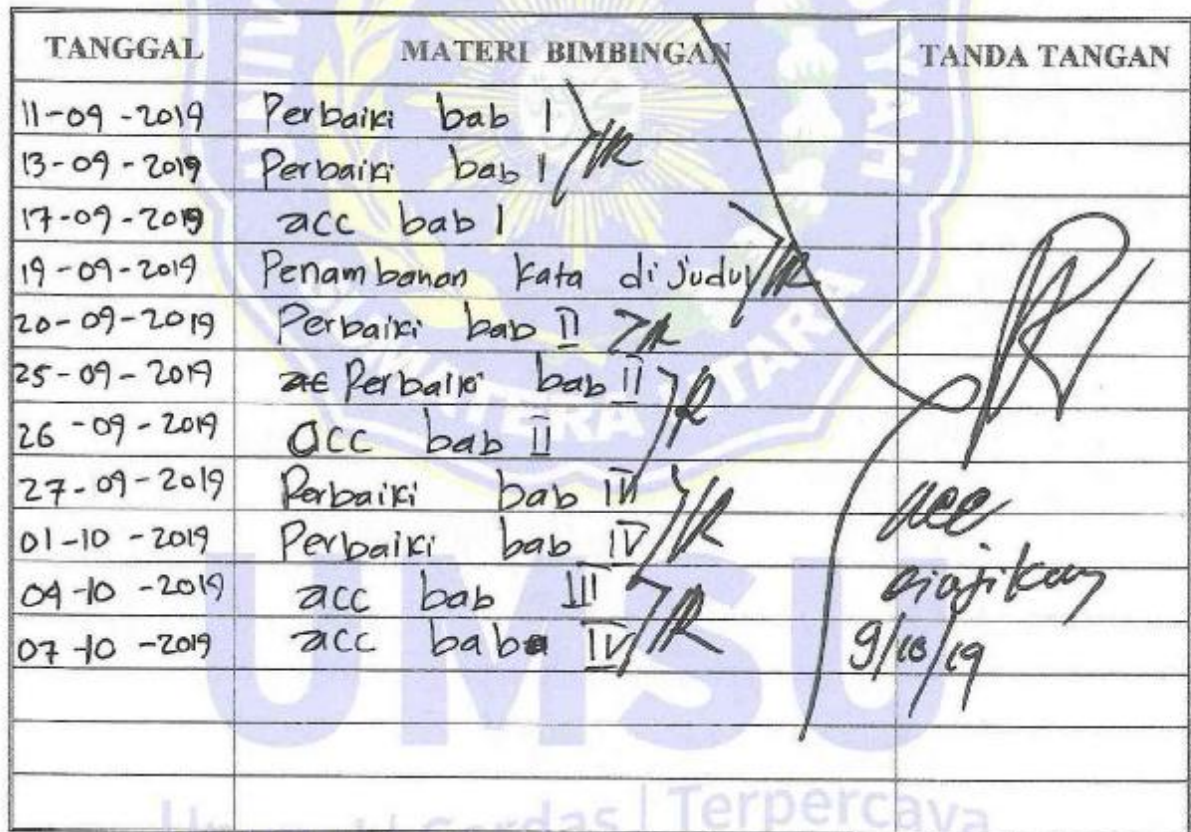 TANGGAL MATERI BIMBINGAN TANDA TANGAN
11-09-2019 Perbaiki bab I
13-09-2019 Perbaiki bab I
17-09-2019 acc bab I
19-09-2019 Penambahan kata di Judul
20-09-2019 Perbaiki bab II
25-09-2019 Perbaiki bab II
26-09-2019 acc bab II
27-09-2019 Perbaiki bab
01-10-2019 Perbaiki bab IV
04-10-2019 acc bab III
07-10-2019 acc bab IV
acc
9/10/19
UMSU
SUMATERA UTARA
Cerdas | Terpercaya